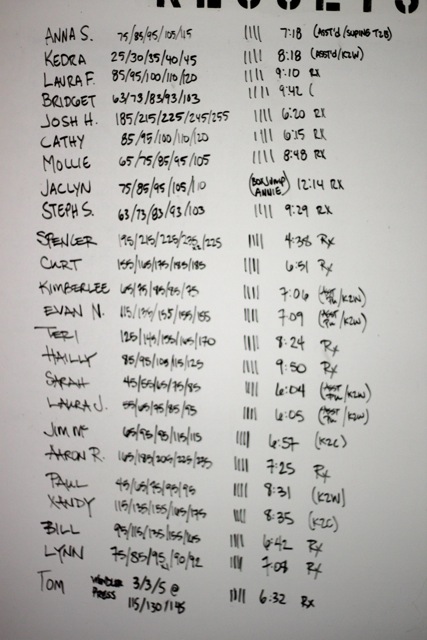 RESULTS
ANNA S. 75/85/95/105/115 |||| 7:18 (ASST'D/SUPINE T2B)
KEDRA 25/30/35/40/45 |||| 8:18 (ASST'D/K2W)
LAURA F. 85/95/100/110/120 |||| 9:10 RX
BRIDGET 63/73/83/93/103 |||| 9:42 (
JOSH H. 185/215/225/245/255 |||| 6:20 RX
CATHY 85/95/100/110/120 |||| 6:15 RX
MOLLIE 65/75/85/95/105 |||| 8:48 RX
JACLYN 75/85/95/105/110 (BOX JUMP ANNIE) 12:14 RX
STEPH S. 63/73/83/93/103 |||| 9:29 RX
SPENCER 195/215/225/235/225 |||| 4:38 Rx
CURT 155/165/175/185/185 |||| 6:51 Rx
KIMBERLEE 65/75/85/75 |||| 7:06 (ASST /K2W)
EVAN N. 115/135/155/155 |||| 7:09 (ASST /K2W)
TERI 125/145/155/165/170 |||| 8:24 Rx
HAILLY 85/95/105/115/125 |||| 9:50 Rx
SARAH 45/55/65/75/85 |||| 6:04 (ASST /K2W)
LAURA J. 55/65/75/85/95 |||| 6:05 (ASST /K2W)
JIM MC 65/95/115/115 |||| 6:57 (K2C)
AARON R. 165/185/205/225/235 |||| 7:25 Rx
PAUL 45/65/75/95/95 |||| 8:31 (K2W)
XANDY 115/135/155/165/175 |||| 8:35 (K2C)
BILL 95/115/135/155/165 |||| 6:42 Rx
LYNN 75/85/95/90/92 |||| 7:08 Rx
TOM WENDLER 3/3/5 @
PRESS 115/130/145 |||| 6:32 Rx